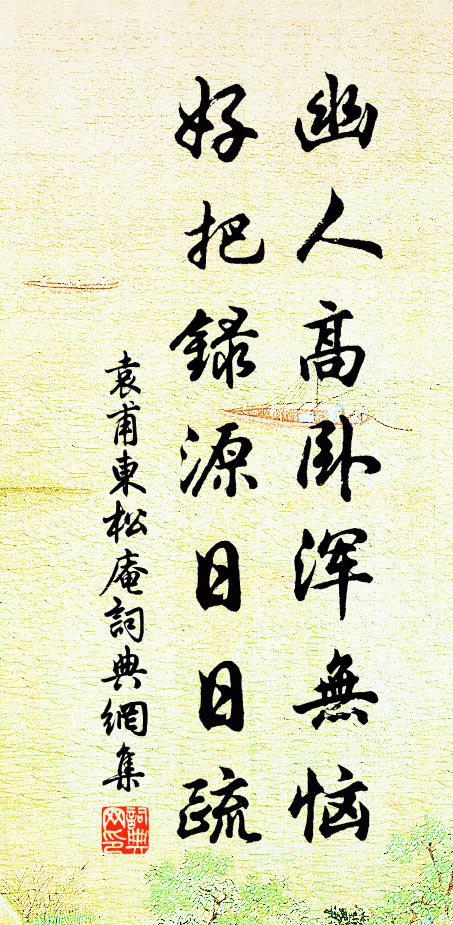 幽人高卧浑無恼
好把録源日日疏
袁甫東松庵詞典網集
詞典网印